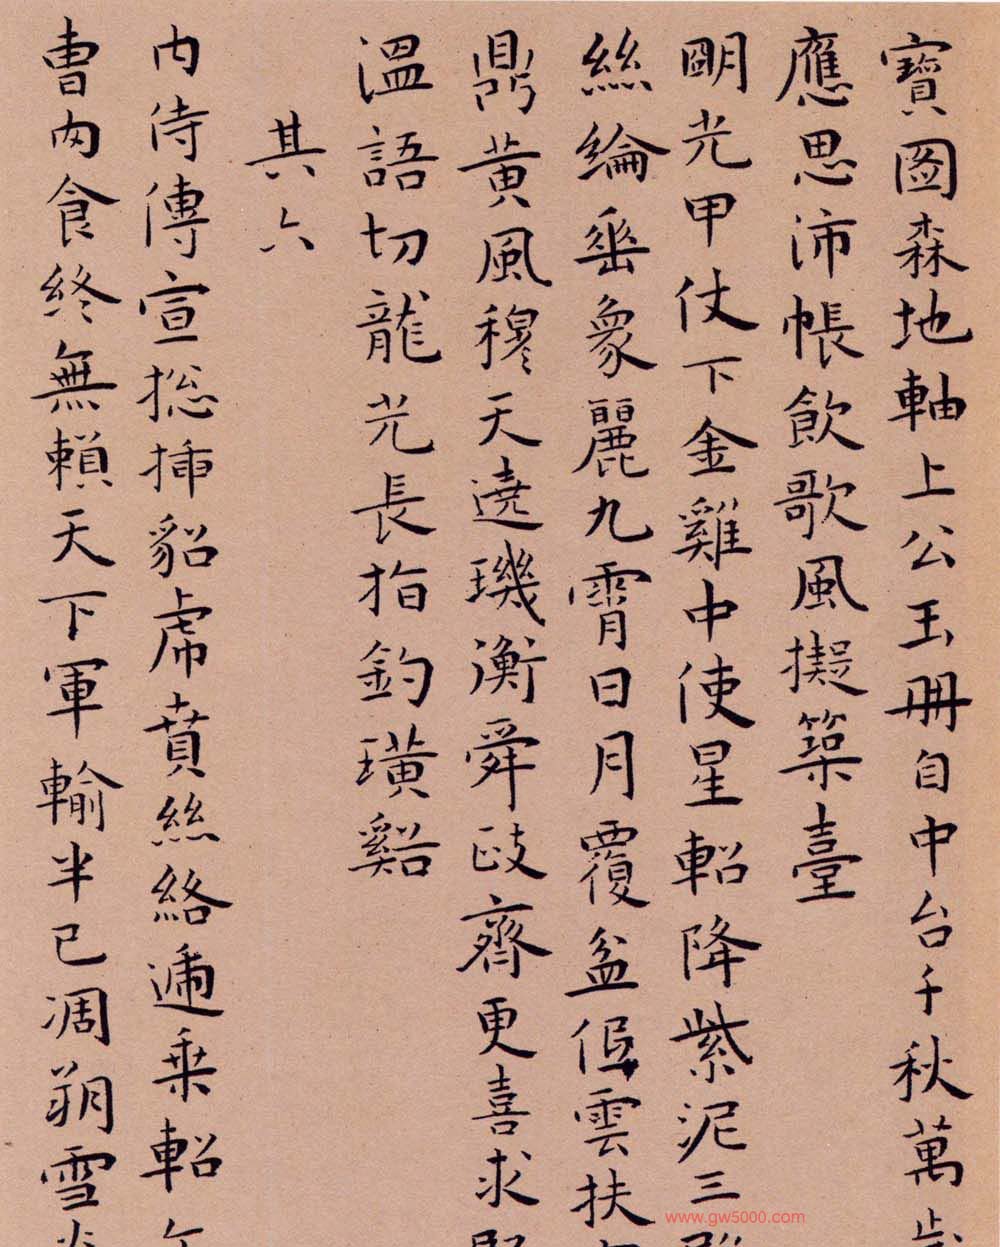 寶圖森地軸上公玉冊自中台千秋萬歲
應思沛帳飲歌風擬築臺
明光甲仗下金雞中使星軺降紫泥三
絲綸垂象麗九霄日月覆盆低雲扶
鼎黃風穆天遶璣衡舜政齊更喜求
溫語切龍光長指釣璜谿
其六
內侍傳宣揔插貂虎賁絲絡遞乘軺
曹內食終無賴天下軍輸半已凋朔雪
www.gw5000.com